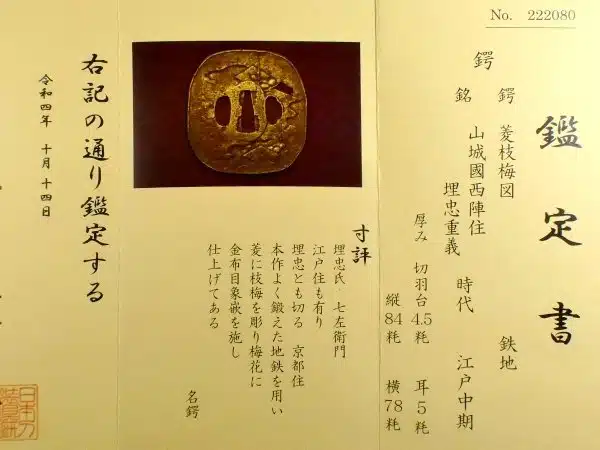 No. 222080
鑑定書
鍔
鍔 菱枝梅図 鉄地
銘 山城國西陣住
埋忠重義 時代 江戸中期
厚み 切羽台4.5粍 耳5粍
縦84粍 横78粍
寸評
埋忠氏 七左衛門
江戸住も有り
埋忠とも切る 京都住
本作よく鍛えた地鉄を用い
菱に枝梅を彫り梅花に
金布目象嵌を施し
仕上げてある
名鍔
右記の通り鑑定する
令和四年 十月 十四日
日本刀